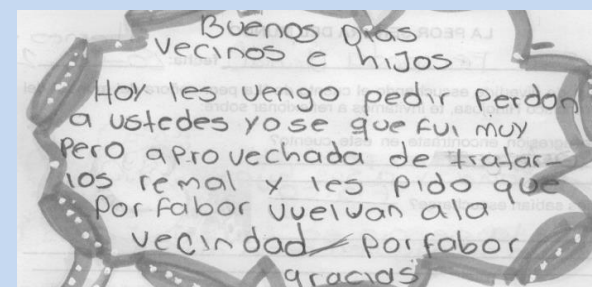 Buenos Dias
vecinos e hijos
Hoy les vengo pedir perdon
a ustedes yo se que fui muy
Pero aprovechada de tratar-
los remal y les pido que
porfabor vuelvan ala
vecindad porfabor
gracias